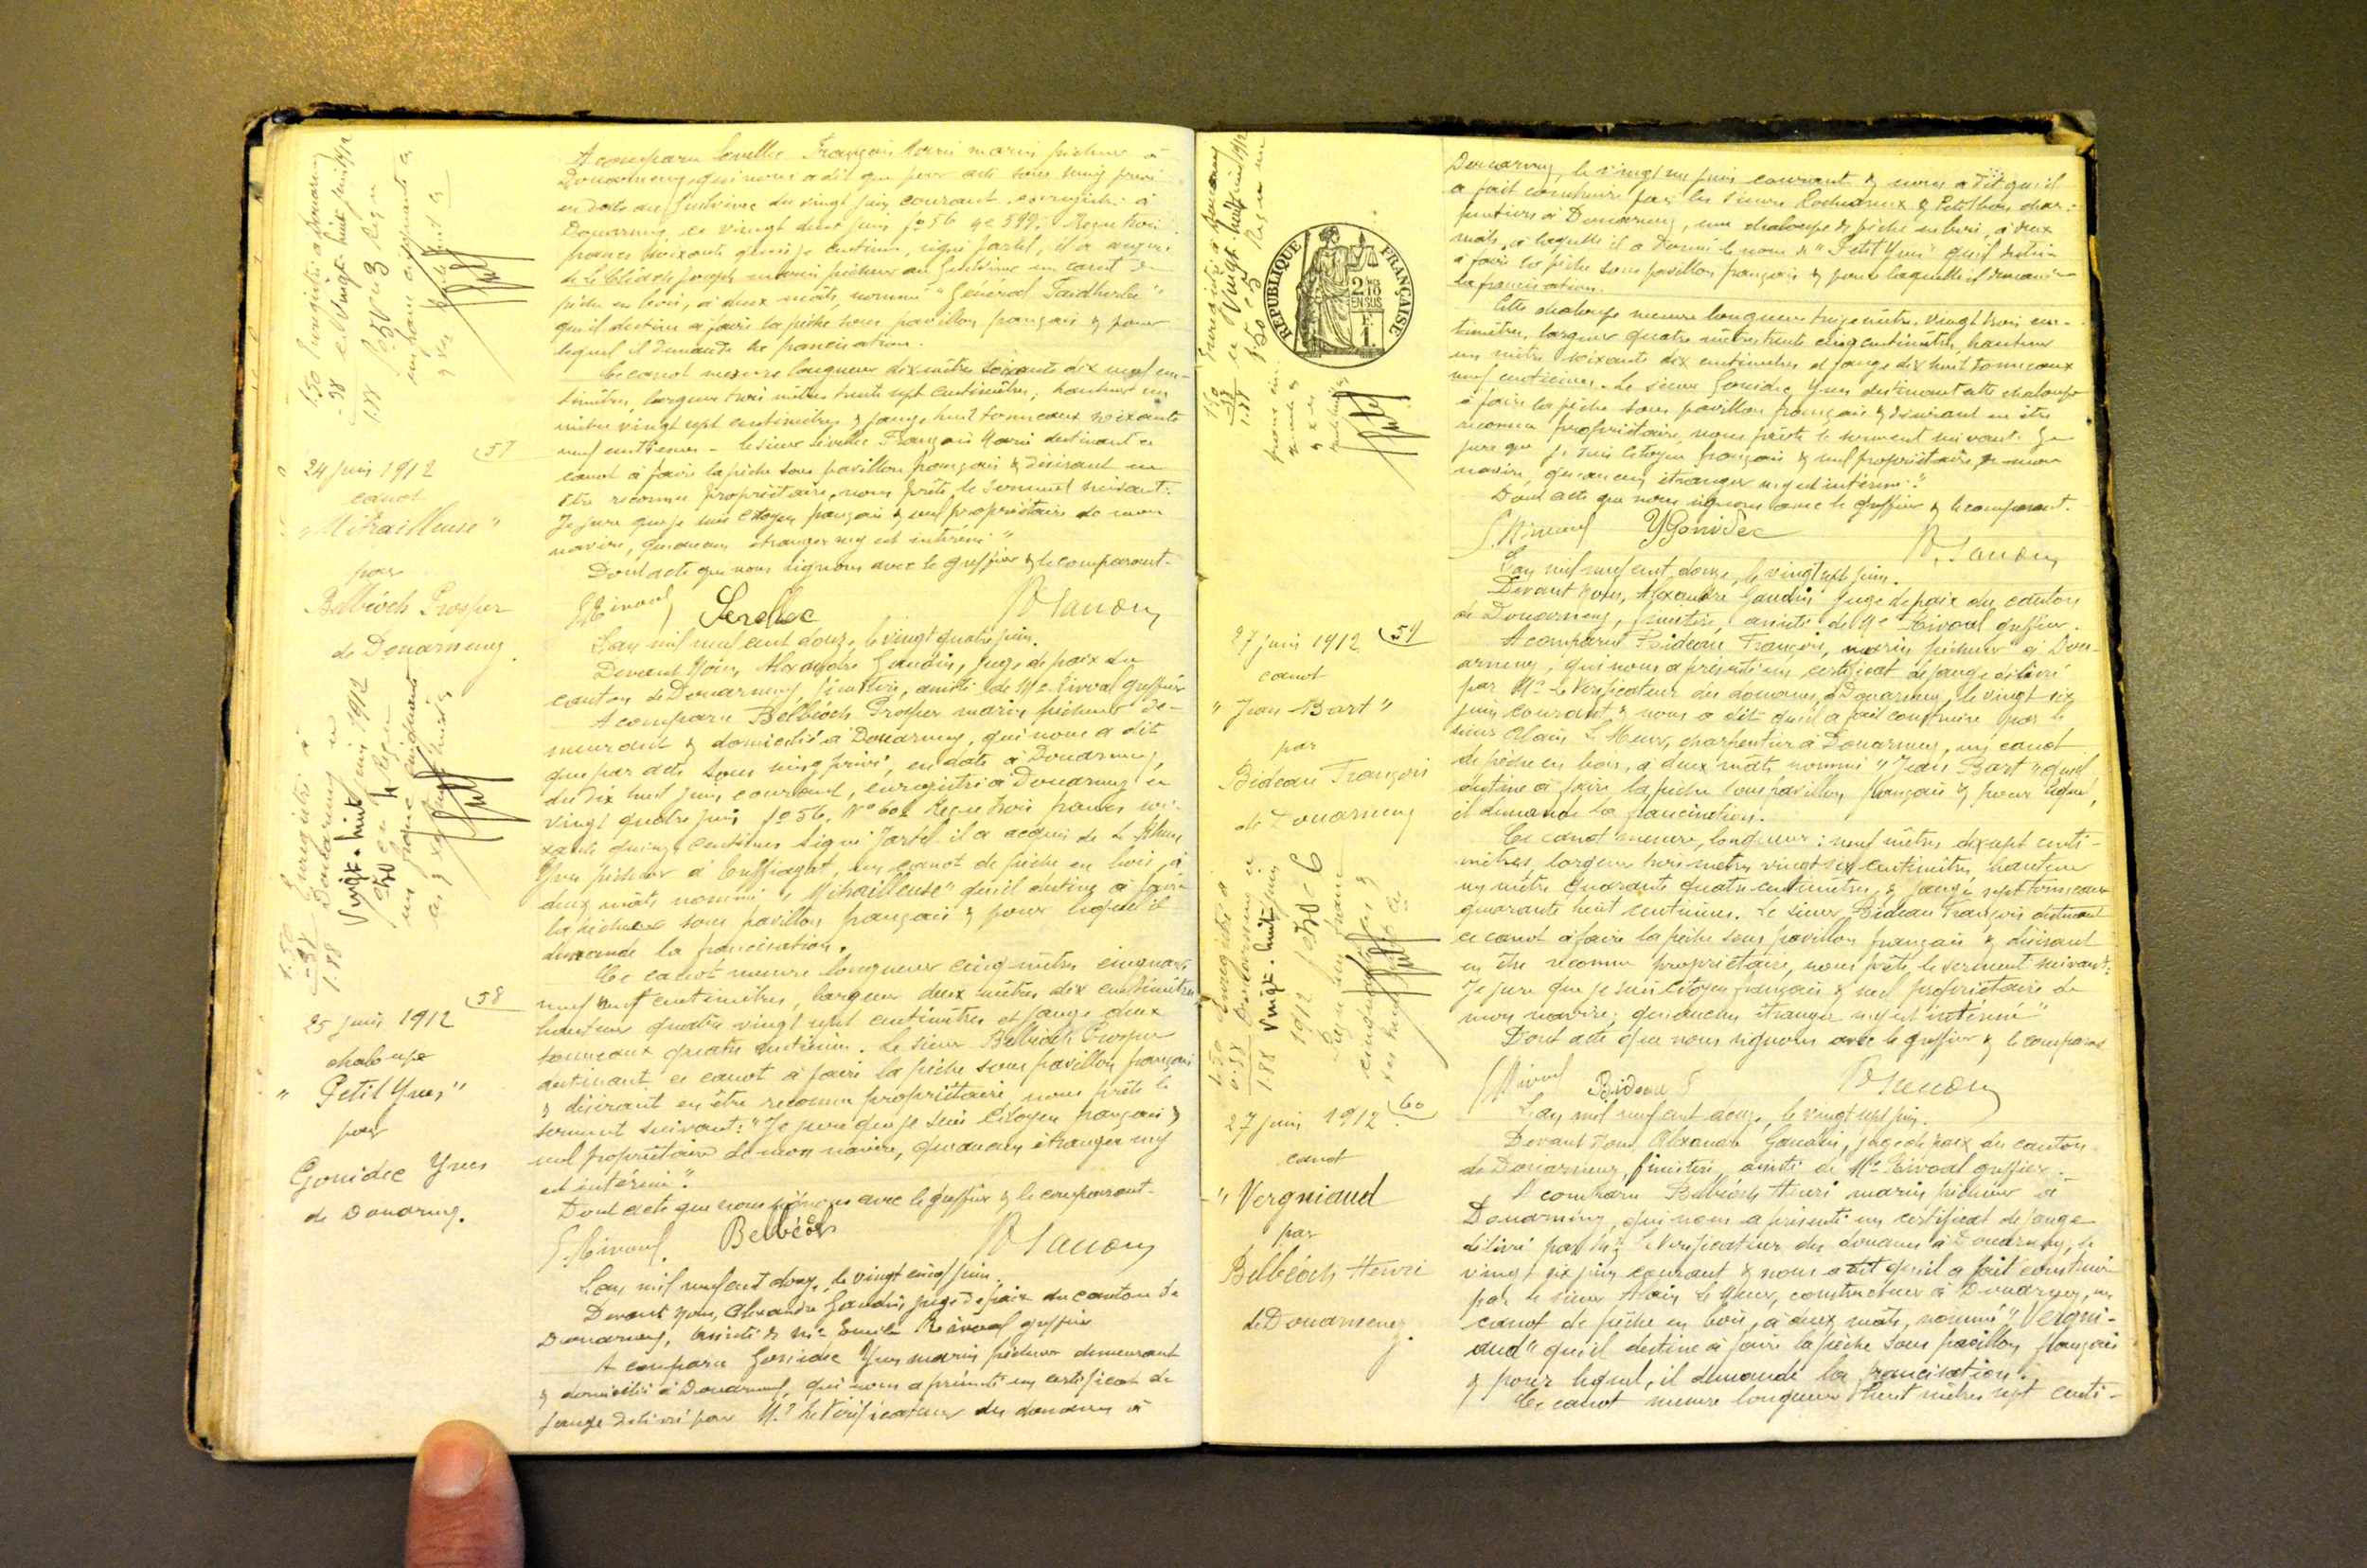 A comparu Sevellec François Marie marin pêcheur à
Douarnenez, qui nous a dit que par acte sous seing privé
en date au Guilvinec du vingt juin courant, enregistré à
Douarnenez, le vingt deux juin fo 56 no 599. Reçu trois
francs soixante quinze centimes, signé Jartel, il a acquis
de Le Cléach Joseph marin pêcheur au Guilvinec un canot de
pêche en bois, à deux mâts, nommé "Général Faidherbe"
qu'il destine à faire la pêche sous pavillon français & pour
lequel il demande la francisation.
Ce canot mesure longueur dix mètres soixante dix neuf cen-
timètres, largeur trois mètres trente sept centimètres, hauteur un
mètre vingt sept centimètres & jauge huit tonneaux soixante
neuf centièmes - le sieur Sevellec François Marie destinant ce
canot à faire la pêche sous pavillon français & désirant en
être reconnu propriétaire, nous prête le serment suivant:
Je jure que je suis citoyen français & seul propriétaire de mon
navire, qu'aucun étranger n'y est intéressé"
Dont acte que nous signons avec le greffier & le comparant.
Sevellec
57
24 juin 1912
canot
"Mitrailleuse"
par
Belbéoch Prosper
de Douarnenez.
L'an mil neuf cent douze, le vingt quatre juin.
Devant Nous, Alexandre Gaudin, juge de paix du
canton de Douarnenez, finistère, assisté de Me Rivoal greffier
A comparu Belbéoch Prosper marin pêcheur de-
meurant & domicilié à Douarnenez, qui nous a dit
que par acte sous seing privé, en date à Douarnenez,
du dix huit juin courant, enregistré à Douarnenez le
vingt quatre juin fo 56. No 602 Reçu trois francs soi-
xante quinze centimes signé Jartel il a acquis de Le
Yves pêcheur à Treffiagat, un canot de pêche en bois, à
deux mâts nommé "Mitrailleuse" qu'il destine à faire
la pêche sous pavillon français & pour lequel il
demande la francisation.
Ce canot mesure longueur cinq mètres cinquante
neuf centimètres, largeur deux mètres dix centimètres
hauteur quatre vingt sept centimètres et jauge deux
tonneaux quatre centièmes. Le sieur Belbéoch Prosper
destinant ce canot à faire la pêche sous pavillon français
& désirant en être reconnu propriétaire nous prête le
serment suivant: "Je jure que je suis citoyen français &
seul propriétaire de mon navire, qu'aucun étranger n'y
est intéressé".
Dont acte que nous signons avec le greffier & le comparant.
Belbéoch
58
25 juin 1912
chaloupe
"Petit Yves"
par
Gonidec Yves
de Douarnenez.
L'an mil neuf cent douze, le vingt cinq juin.
Devant Nous, Alexandre Gaudin, juge de paix du canton de
Douarnenez, assisté de Me Emile Rivoal greffier
A comparu Gonidec Yves marin pêcheur demeurant
& domicilié à Douarnenez, qui nous a présenté un certificat de
jauge délivré par Mr le Vérificateur des douanes à
RÉPUBLIQUE FRANÇAISE
Douarnenez, le vingt un juin courant & nous a dit qu'il
a fait construire par les sieurs & Petitbon char-
pentiers à Douarnenez, une chaloupe de pêche en bois, à deux
mâts, à laquelle il a donné le nom de "Petit Yves" qu'il destine
à faire la pêche sous pavillon français & pour laquelle il demande
la francisation.
Cette chaloupe mesure longueur treize mètres, vingt trois cen-
timètres, largeur quatre mètres trente cinq centimètres, hauteur
un mètre soixante dix centimètres et jauge dix huit tonneaux
neuf centièmes. Le sieur Gonidec Yves destinant cette chaloupe
à faire la pêche sous pavillon français & désirant en être
reconnu propriétaire, nous prête le serment suivant. Je
jure que je suis citoyen français & seul propriétaire de mon
navire, qu'aucun étranger n'y est intéressé."
Dont acte que nous signons avec le greffier & le comparant.
Y Gonidec
L'an mil neuf cent douze, le vingt sept juin.
Devant Nous, Alexandre Gaudin juge de paix du canton
de Douarnenez, finistère, assisté de Me Rivoal greffier.
59
27 juin 1912
canot
"Jean Bart"
par
Bideau François
de Douarnenez
A comparu Bideau François, marin pêcheur à Dou-
arnenez, qui nous a présenté un certificat de jauge délivré
par Mr le Vérificateur des douanes, à Douarnenez, le vingt six
juin courant & nous a dit qu'il a fait construire par le
sieur Alain Le Meur, charpentier à Douarnenez, un canot
de pêche en bois, à deux mâts nommé "Jean Bart" qu'il
destine à faire la pêche sous pavillon français & pour lequel,
il demande la francisation.
Ce canot mesure, longueur: neuf mètres dix sept centi-
mètres, largeur trois mètres vingt six centimètres, hauteur
un mètre quarante quatre centimètres, & jauge sept tonneaux
quarante huit centièmes. Le sieur Bideau François destinant
ce canot à faire la pêche sous pavillon français & désirant
en être reconnu propriétaire, nous prête le serment suivant:
Je jure que je suis citoyen français & seul propriétaire de
mon navire; qu'aucun étranger n'y est intéressé"
Dont acte que nous signons avec le greffier & le comparant
Bideau F
60
27 juin 1912
canot
"Vergniaud
par
Belbéoch Henri
de Douarnenez.
L'an mil neuf cent douze, le vingt sept juin.
Devant Nous Alexandre Gaudin, juge de paix du canton
de Douarnenez, finistère, assisté de Me Rivoal greffier.
A comparu Belbéoch Henri marin pêcheur à
Douarnenez, qui nous a présenté un certificat de jauge
délivré par Mr le Vérificateur des douanes à Douarnenez, le
vingt six juin courant & nous a dit qu'il a fait construire
par le sieur Alain Le Meur, constructeur à Douarnenez, un
canot de pêche en bois, à deux mâts, nommé "Vergni-
aud" qu'il destine à faire la pêche sous pavillon français
& pour lequel, il demande la francisation.
Ce canot mesure longueur huit mètres sept centi-